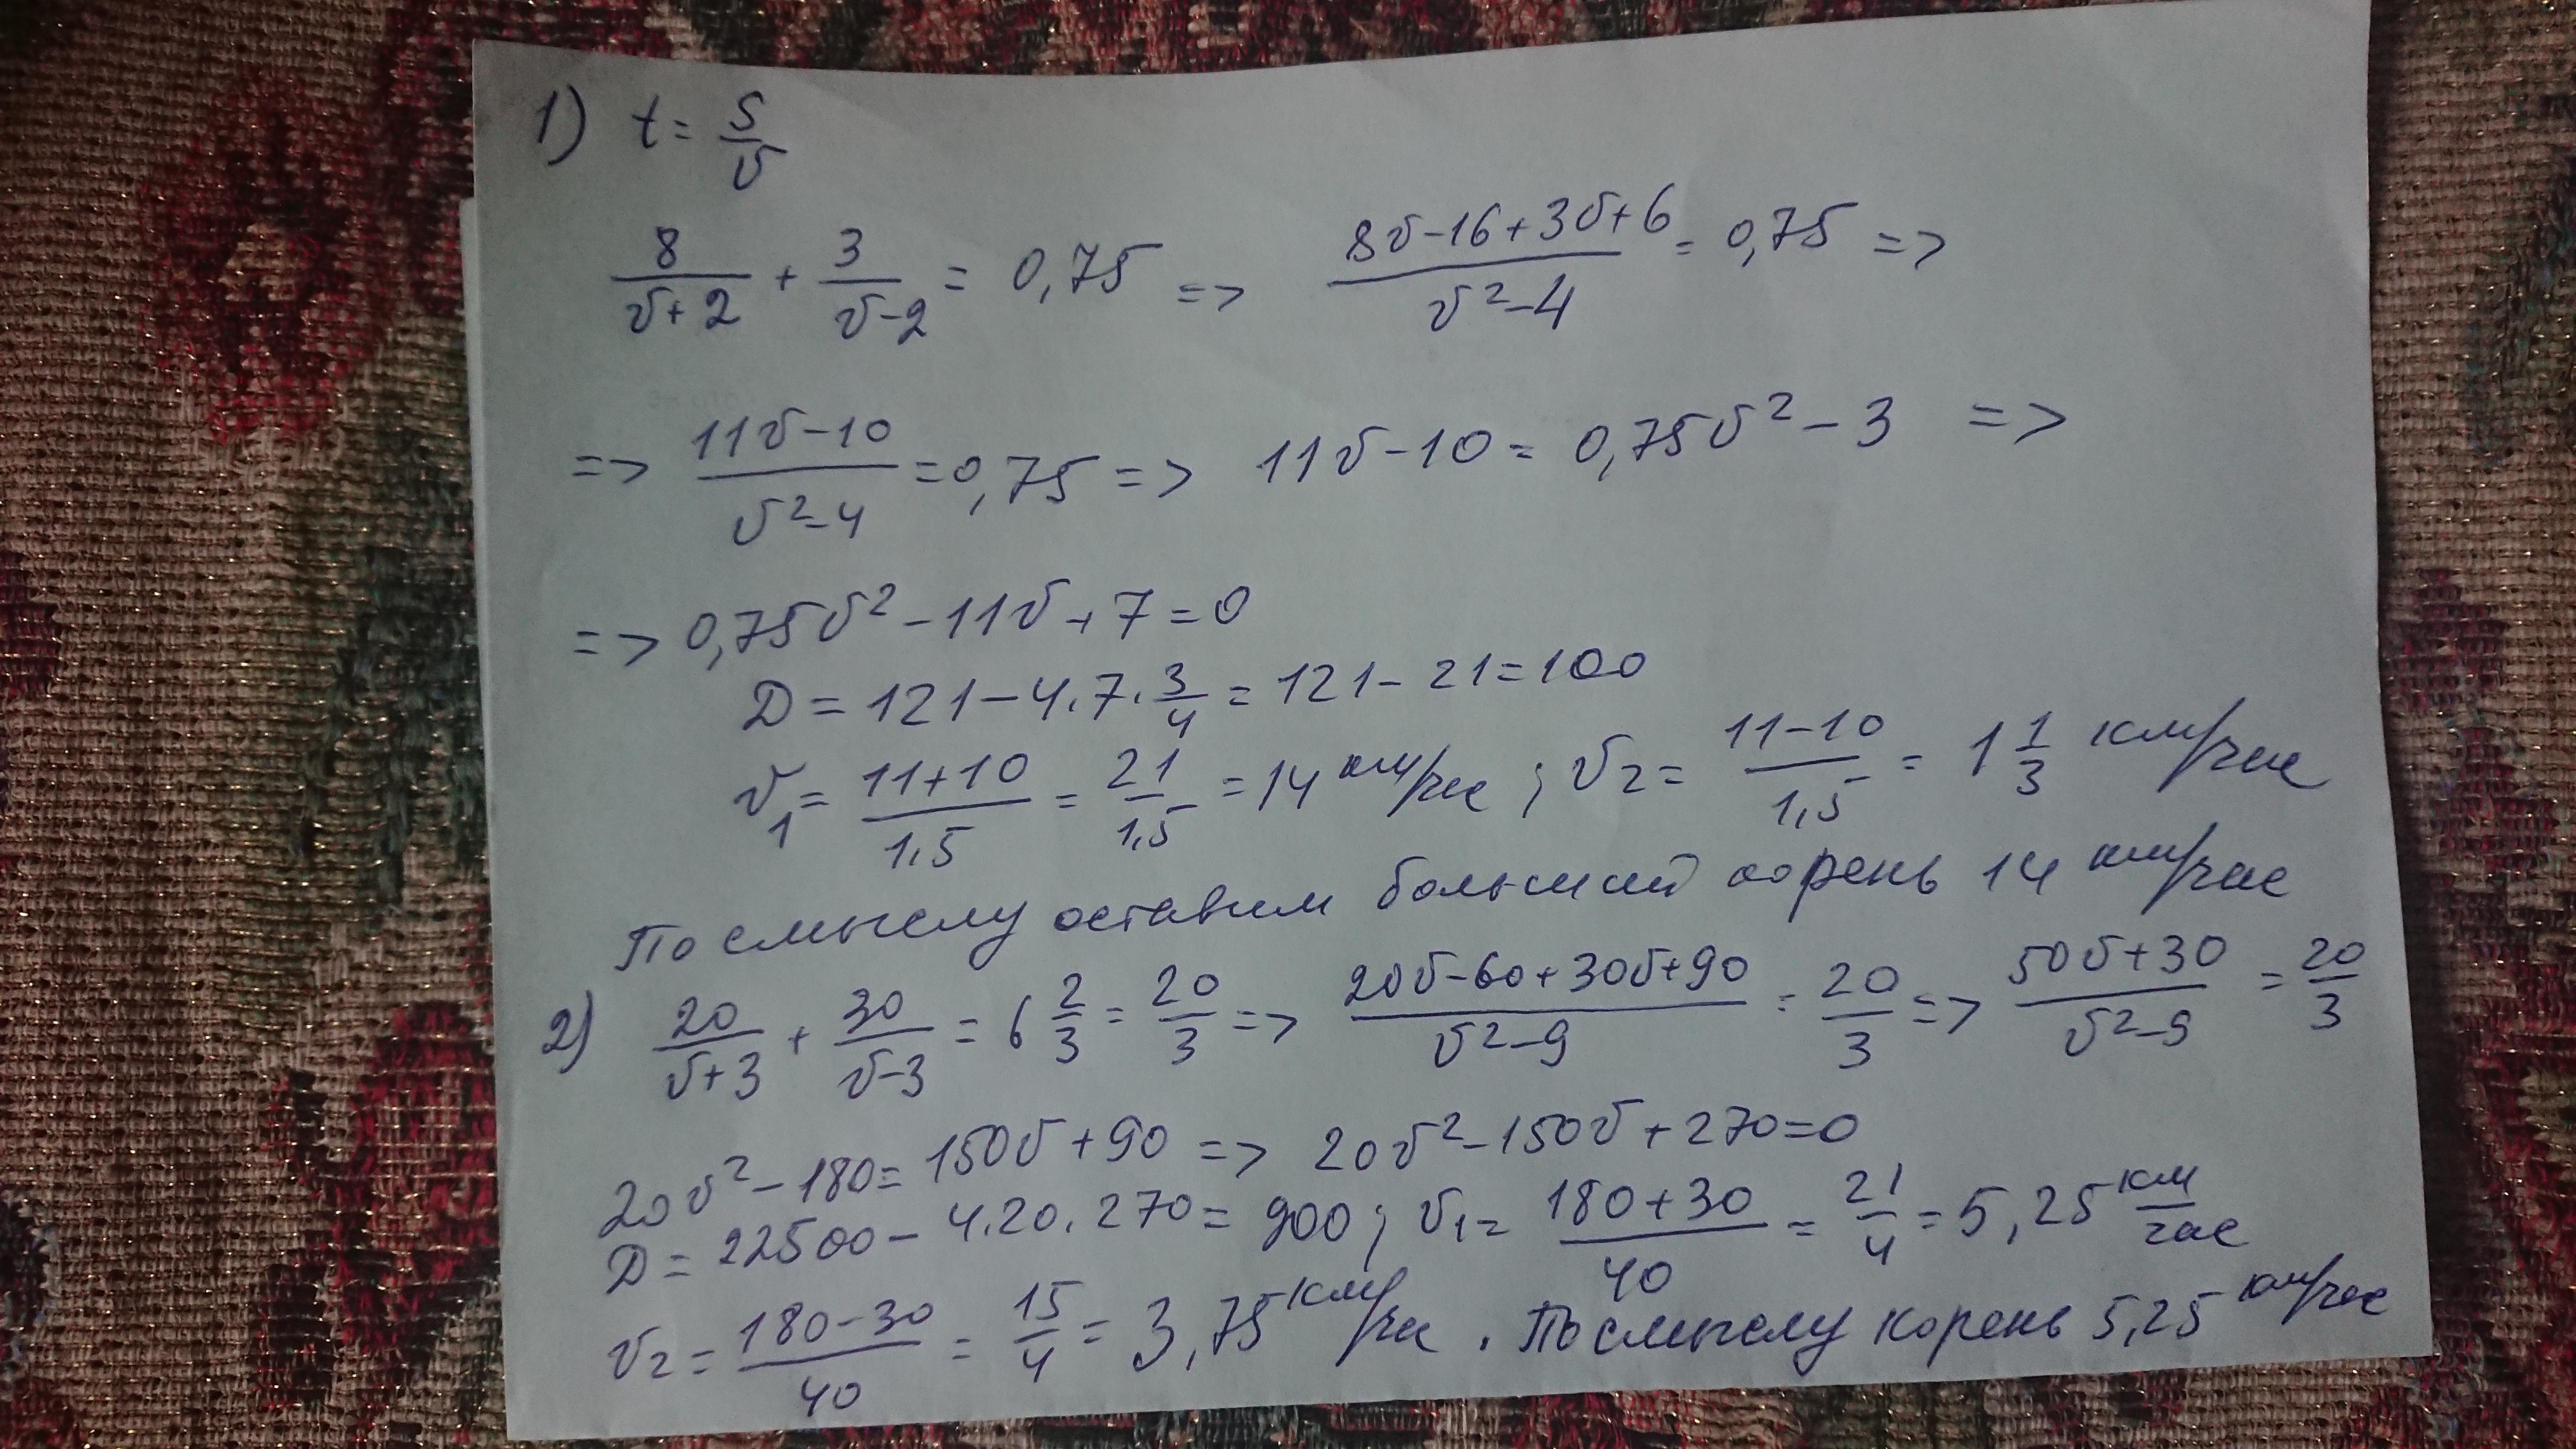 1) t = S/v
8/(v+2) + 3/(v-2) = 0,75 => (8v-16+3v+6)/(v²-4) = 0,75 =>
=> (11v-10)/(v²-4) = 0,75 => 11v-10 = 0,75v²-3 =>
=> 0,75v²-11v+7=0
D = 121-4·7·3/4 = 121-21=100
v₁ = (11+10)/1,5 = 21/1,5 = 14 км/час ; v₂ = (11-10)/1,5 = 1 1/3 км/час
По смыслу оставим больший корень 14 км/час
2) 20/(v+3) + 30/(v-3) = 6 2/3 = 20/3 => (20v-60+30v+90)/(v²-9) = 20/3 => (50v+30)/(v²-9) = 20/3
20v²-180 = 150v+90 => 20v²-150v+270=0
D = 22500-4·20·270 = 900 ; v₁ = (180+30)/40 = 21/4 = 5,25 км/час
v₂ = (180-30)/40 = 15/4 = 3,75 км/час . По смыслу корень 5,25 км/час